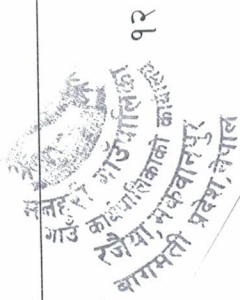 १२
मनहरी गाउँपालिका
गाउँ कार्यपालिकाको कार्यालय
रजैया, मकवानपुर
बागमती प्रदेश, नेपाल